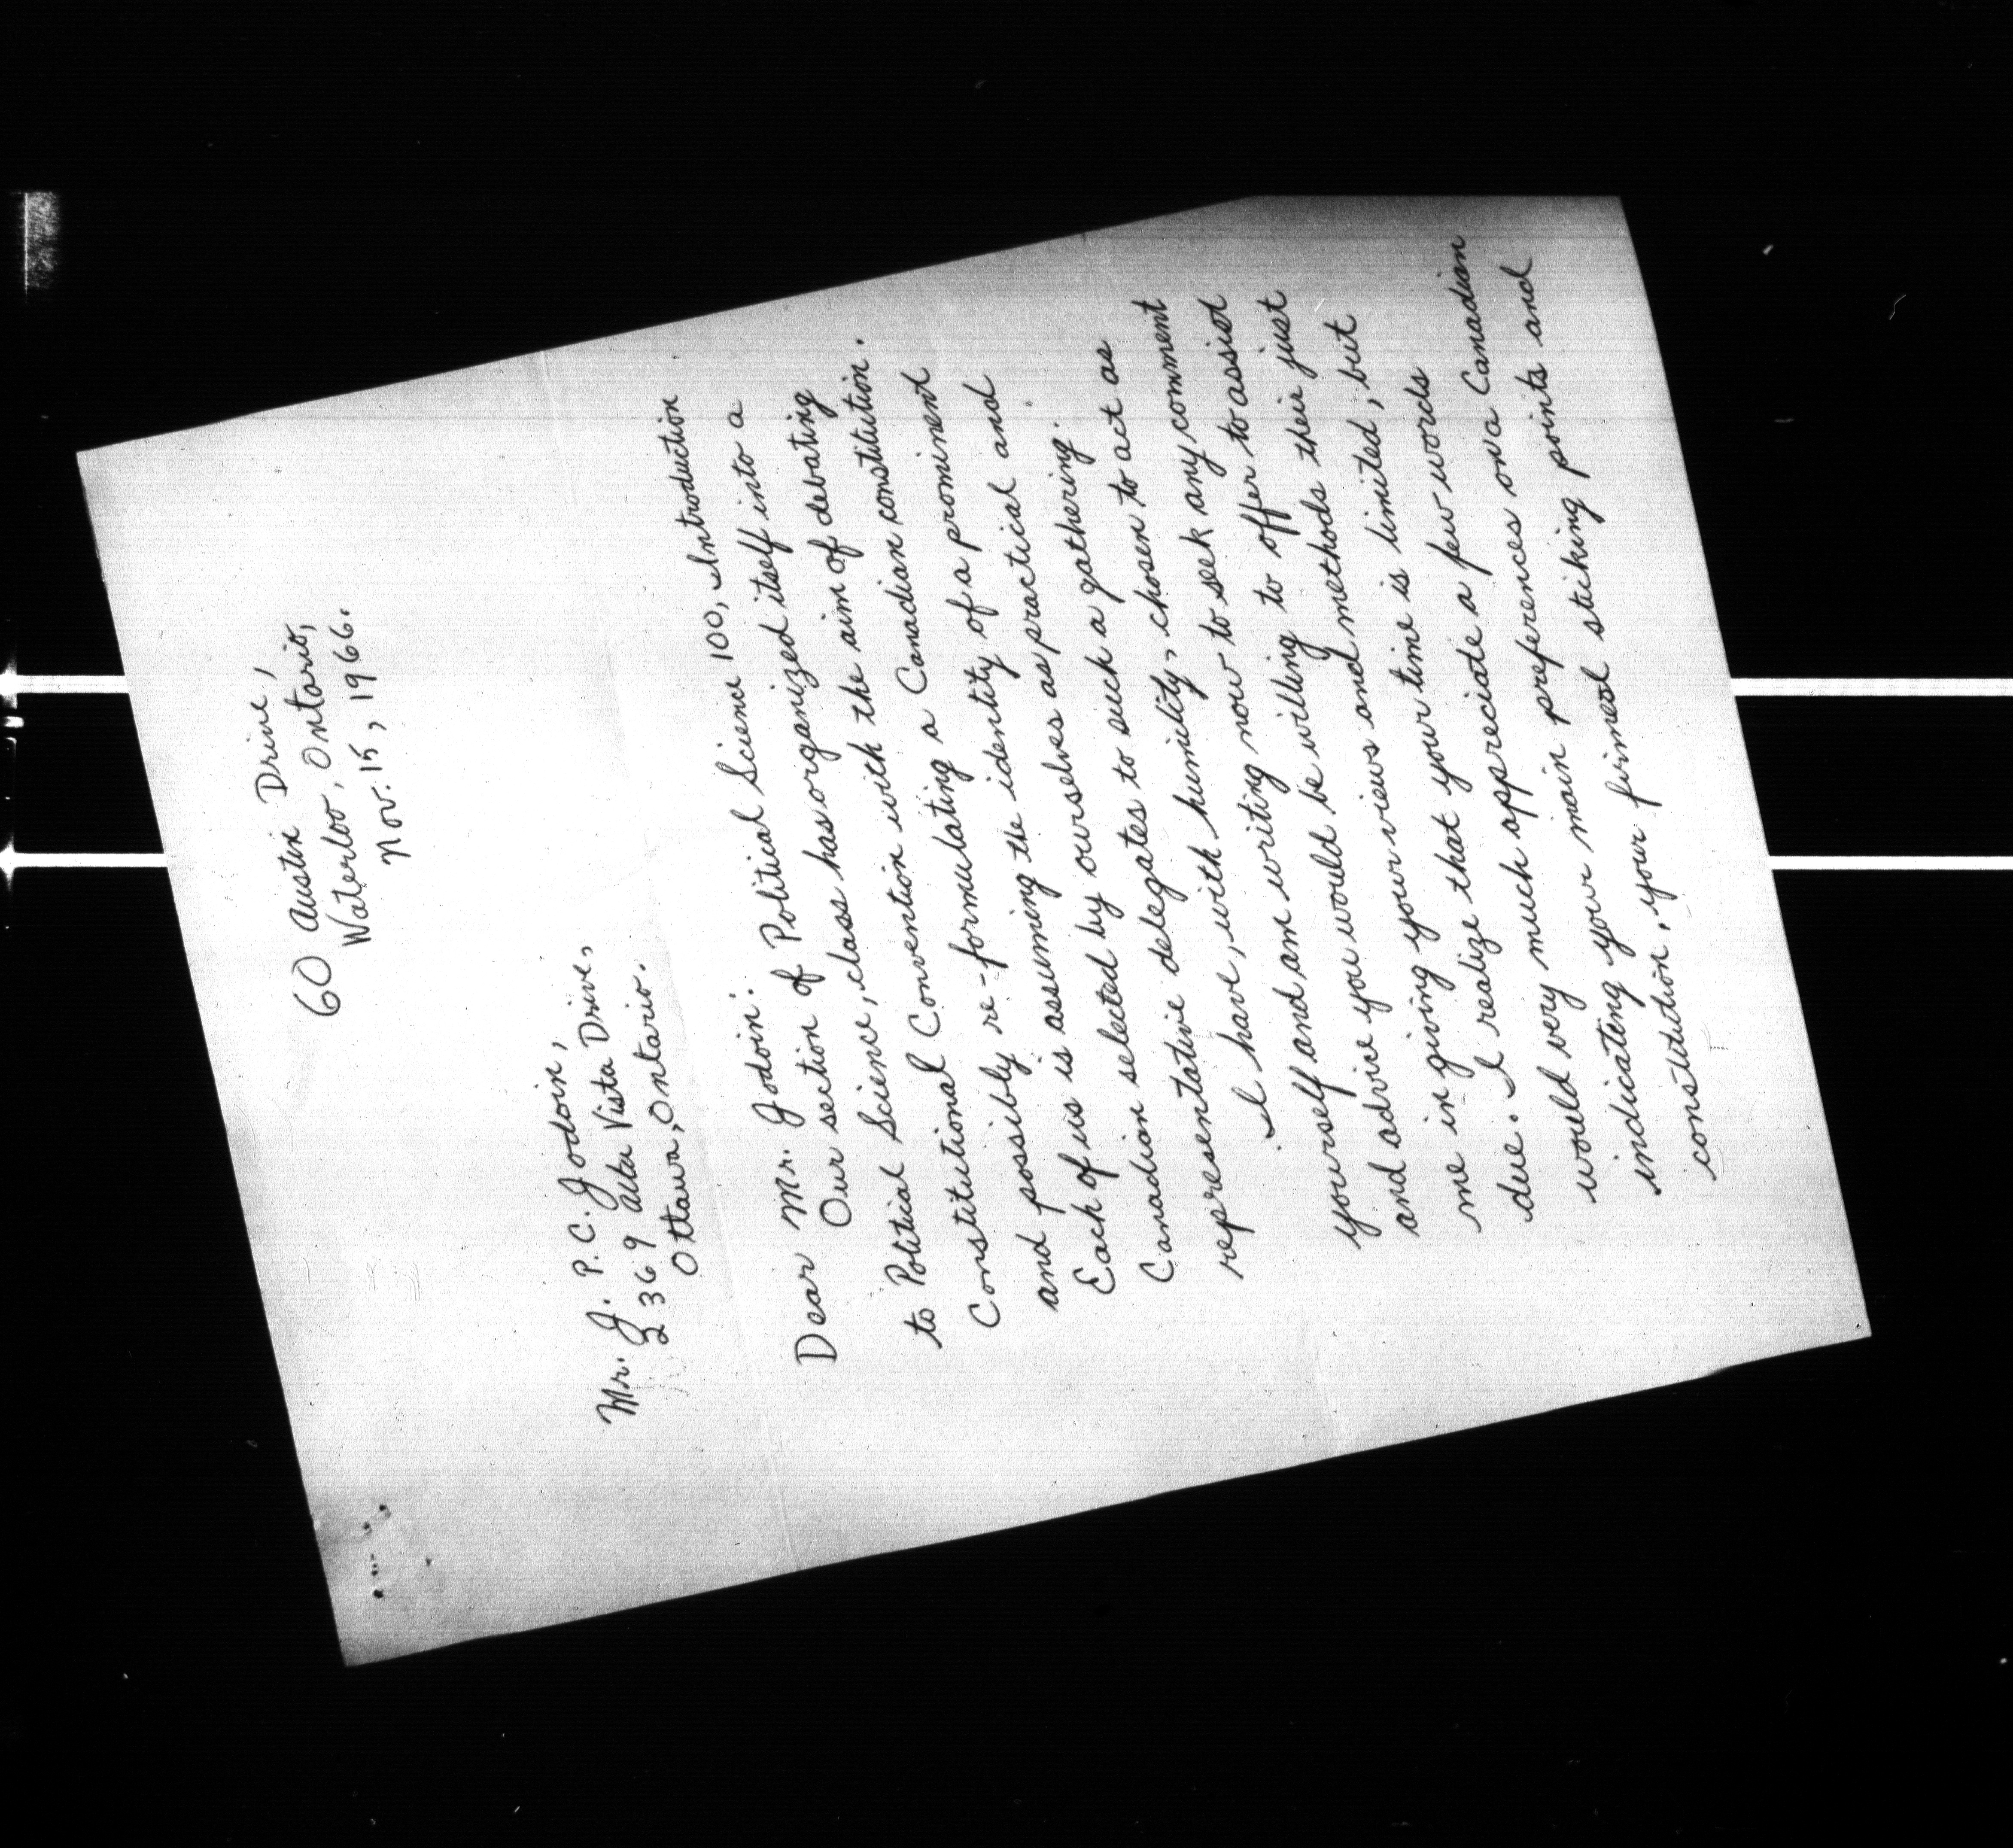 60 Austin Drive,
Waterloo, Ontario,
Nov. 15, 1966.
Mr. J. P. C. Jodoin,
2369 Alta Vista Drive,
Ottawa, Ontario.
Dear Mr. Jodoin:
Our section of Political Science 100, Introduction
to Political Science, class has organized itself into a
Constitutional Convention with the aim of debating
and possibly re-formulating a Canadian constitution.
Each of us is assuming the identity of a prominent
Canadian selected by ourselves as practical and
representative delegates to such a gathering.
I have, with humility, chosen to act as
yourself and am writing now to seek any comment
and advice you would be willing to offer to assist
me in giving your views and methods their just
due. I realize that your time is limited, but
would very much appreciate a few words
indicating your main preferences on a Canadian
constitution, your firmest stiking points and